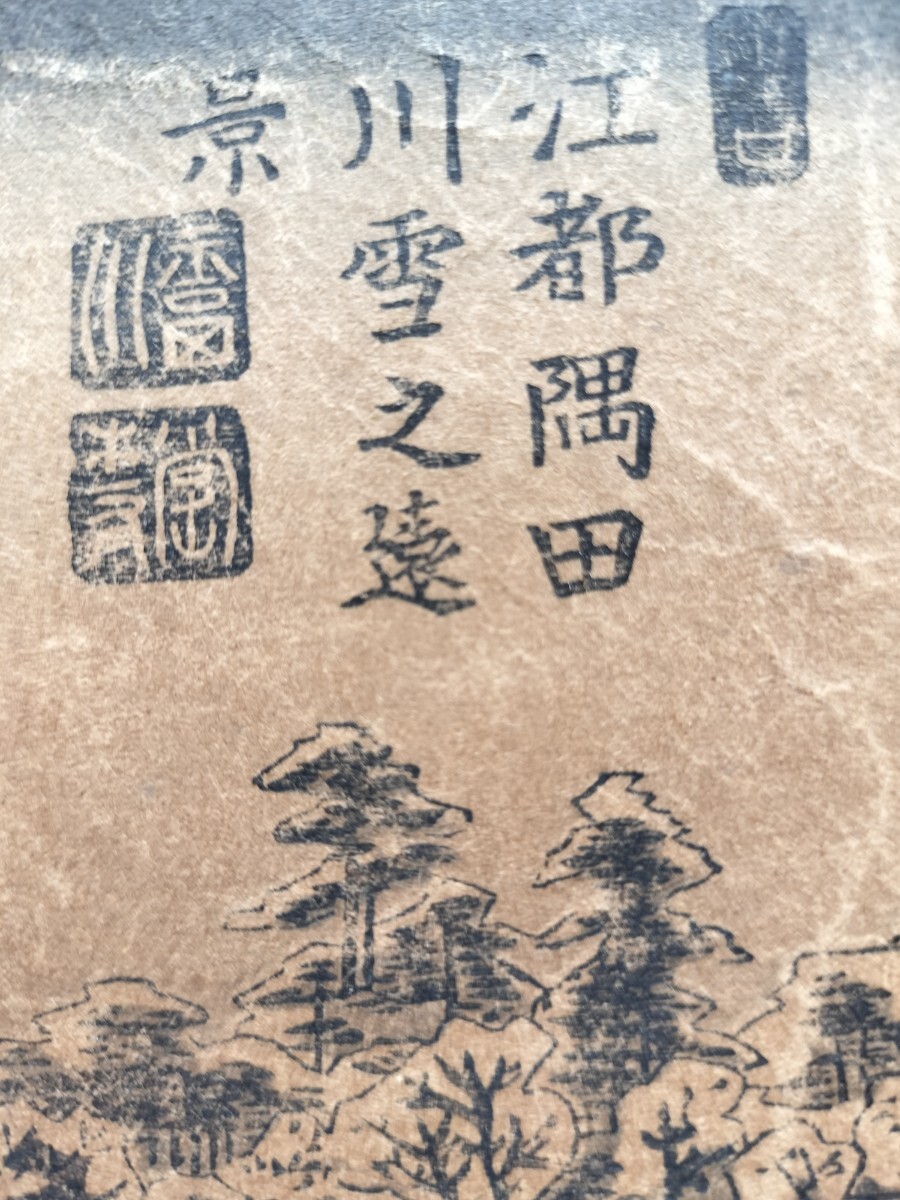 江都隅田
川雪之遠
景
香川